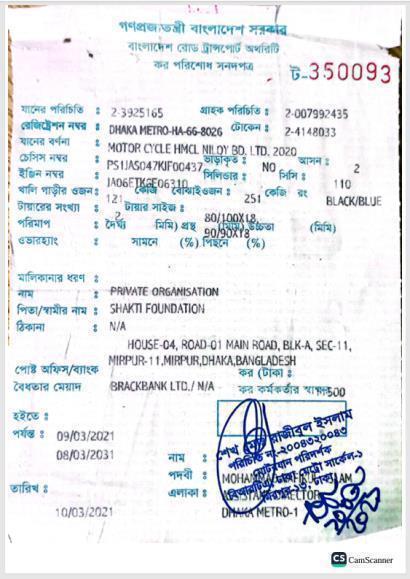 গণপ্রজাতন্ত্রী বাংলাদেশ সরকার
বাংলাদেশ রোড ট্রান্সপোর্ট অথরিটি
কর পরিশোধ সনদপত্র
ট-350093
যানের পরিচিতি : 2-3925165 গ্রাহক পরিচিতি : 2-007992435
রেজিষ্ট্রেশন নম্বর : DHAKA METRO-HA-66-8026 টোকেন : 2-4148033
যানের বর্ণনা : MOTOR CYCLE HMCL NILOY BD. LTD. 2020
চেসিস নম্বর : PS1JAS047KJF00437 ভাড়াকৃত : NO আসন : 2
ইঞ্জিন নম্বর : JA06ETKGF06310 সিলিন্ডার : সিসি : 110
খালি গাড়ীর ওজন : 121 কেজি বোঝাইওজন : 251 কেজি রং BLACK/BLUE
টায়ারের সংখ্যা : 2 টায়ার সাইজ : 80/100X18
পরিমাপ : দৈর্ঘ্য (মিমি) প্রস্থ (মিমি) উচ্চতা (মিমি)
90/90X18
ওভারহ্যাং : সামনে (%) পিছনে (%)
মালিকানার ধরণ :
নাম : PRIVATE ORGANISATION
পিতা/স্বামীর নাম : SHAKTI FOUNDATION
ঠিকানা : N/A
HOUSE-04, ROAD-01 MAIN ROAD, BLK-A, SEC-11,
MIRPUR-11,MIRPUR,DHAKA,BANGLADESH
পোষ্ট অফিস/ব্যাংক : কর (টাকা :
বৈধতার মেয়াদ BRACKBANK LTD./ N/A কর কর্মকর্তার 500
হইতে :
পর্যন্ত : 09/03/2021
08/03/2031
নাম :
পদবী :
তারিখ : এলাকা :
10/03/2021 DHAKA METRO-1
CS CamScanner